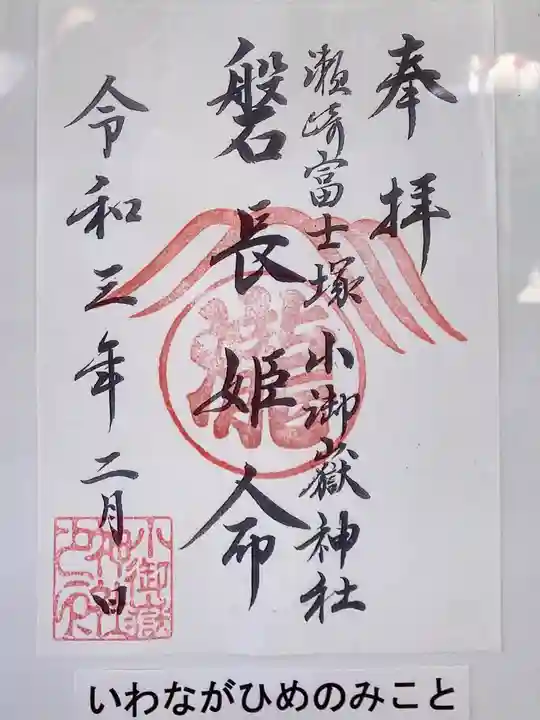 奉拝
瀬崎富士塚 小御嶽神社
磐長姫命
令和三年二月 日
いわながひめのみこと